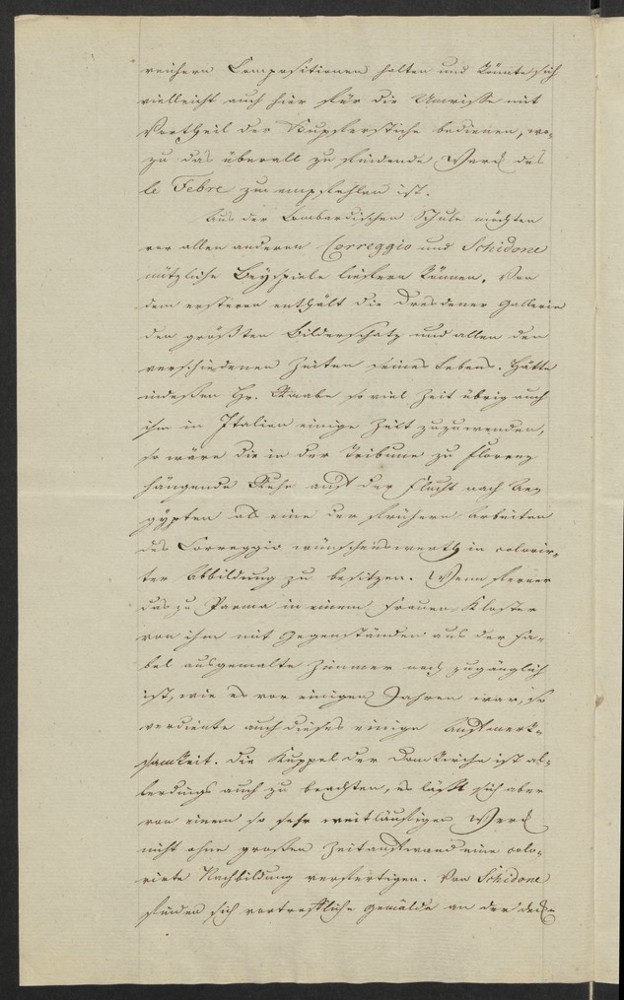 reichern Compositionen halten und könnte sich
vielleicht auch hier für die Umrisse mit
Vortheil der Kupferstiche bedienen, wo-
zu das überall zu findende Werk des
le Febre zu empfehlen ist.
Aus der Lombardischen Schule möchten
vor allen anderen Correggio und Schidone
nützliche Beyspiele liefern können. Von
dem ersteren enthält die Dresdener Gallerie
den größten Bilderschatz und allen den
verschiedenen Zeiten seines Lebens. Hätte
indessen Hr. Raabe so viel Zeit übrig auch
ihm in Italien einige Zeit zuzuwenden,
so wäre die in der Tribune zu Florenz
hängende Ruhe auf der Flucht nach Ae-
gypten als eine der frühern Arbeiten
des Correggio wünschenswerth in colorir-
ter Abbildung zu besitzen. Wenn ferner
das zu Parma in einem Frauen Kloster
von ihm mit Gegenständen aus der Fa-
bel ausgemalte Zimmer noch zugänglich
ist, wie es vor einigen Jahren war, so
verdiente auch dieses einige Aufmerk-
samkeit. Die Kuppel der Domkirche ist al-
lerdings auch zu beachten, es läßt sich aber
von einem so sehr weitläufigen Werk
nicht ohne großen Zeitaufwand eine colo-
rirte Nachbildung verfertigen. Von Schidone
finden sich vortreffliche Gemälde an den